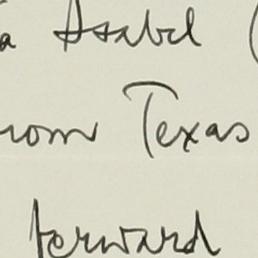 a Isabel (
rom Texas
forward